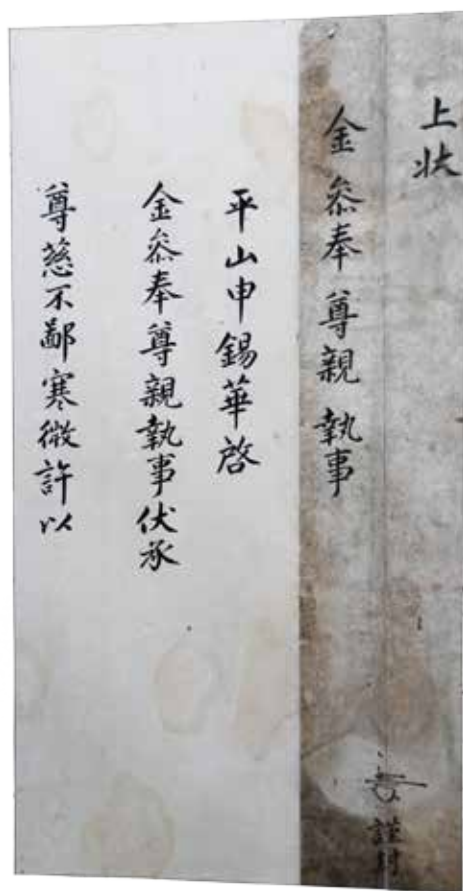 上狀
金叅奉 尊親 執事
謹封
平山申錫華啓
金叅奉尊親執事伏承
尊慈不鄙寒微許以